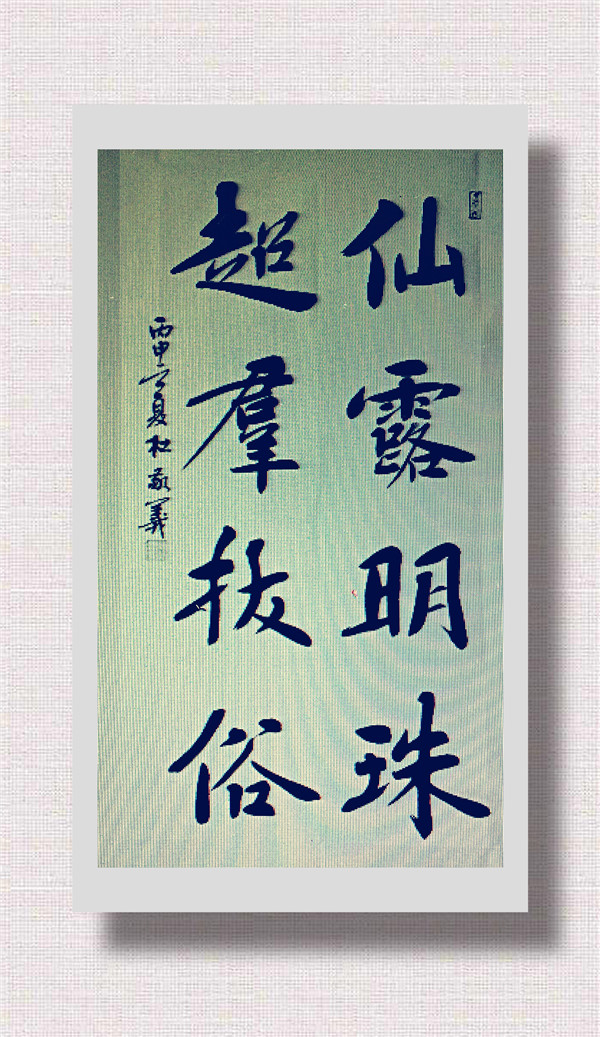 仙露明珠
超羣拔俗
丙申之夏杜敬義